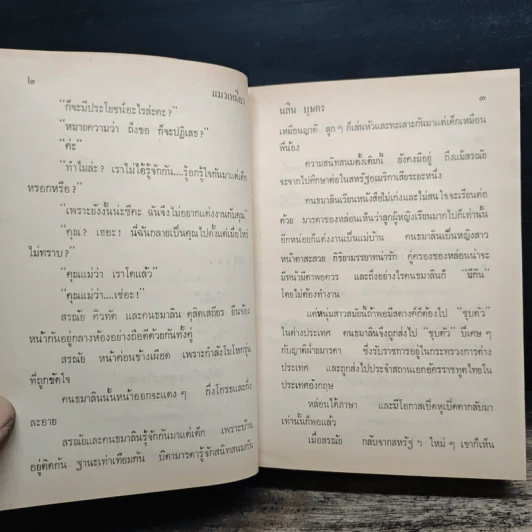 ๒
แมวเหมียว
"ก็จะมีประโยชน์อะไรล่ะคะ?"
"หมายความว่า ถึงขอ ก็จะปฏิเสธ?"
"ค่ะ"
"ทำไมล่ะ? เราไม่ได้รู้จักกัน....รู้อกรู้ใจกันมาแต่เด็ก
หรอกหรือ?"
"เพราะยังงั้นน่ะซีคะ ฉันจึงไม่อยากแต่งงานกับคุณ"
"คุณ? เชอะ! นี่ฉันกลายเป็นคุณไปตั้งแต่เมื่อไหร่
ไม่ทราบ?"
"คุณแม่ว่า เราโตแล้ว"
"คุณแม่ว่า....เชอะ!"
สรณัย ศิวทัต และคนธมาลิน ดุสิตเสถียร ยืนจ้อง
หน้ากันอยู่กลางห้องอย่างถือดีด้วยกันทั้งคู่
สรณัย หน้าค่อนข้างเผือด เพราะกำลังโมโหกรุ่น
ที่ถูกขัดใจ
คนธมาลินนั้นหน้าออกจะแดง ๆ กึ่งโกรธและกึ่ง
ละอาย
สรณัยและคนธมาลินรู้จักกันมาแต่เด็ก เพราะบ้าน
อยู่ติดกัน ฐานะเท่าเทียมกัน บิดามารดารู้จักสนิทสนมกัน
๓
นลิน บุษกร
เหมือนญาติ ลูก ๆ ก็เล่นหัวและทะเลาะกันมาแต่เด็กเหมือน
พี่น้อง
ความสนิทสนมดั้งเดิมนี้ ยังคงมีอยู่ ถึงแม้สรณัย
จะจากไปศึกษาต่อในสหรัฐอเมริกาเสียระยะหนึ่ง
คนธมาลินเรียนหนังสือไม่เก่งและไม่สนใจจะเรียนต่อ
ด้วย มารดาของหล่อนเห็นว่าลูกผู้หญิงเรียนมากไปก็เท่านั้น
อีกหน่อยก็แต่งงานเป็นแม่บ้าน คนธมาลินเป็นหญิงสาว
หน้าตาสะสวย กิริยามรรยาทน่ารัก คู่ครองของหล่อนน่าจะ
มีหน้ามีตาพอควร และถึงอย่างไรคนธมาลินก็ "มีกิน"
โดยไม่ต้องทำงาน
แต่หนุ่มสาวสมัยนี้ถ้าพอมีสตางค์ก็ต้องไป "ชุบตัว"
ในต่างประเทศ คนธมาลินจึงถูกส่งไป "ชุบตัว" ปีเศษ ๆ
กับญาติฝ่ายมารดา ซึ่งรับราชการอยู่ในกระทรวงการต่าง
ประเทศ และถูกส่งไปประจำสถานเอกอัครราชทูตไทยใน
ประเทศอังกฤษ
หล่อนได้ภาษา และมีโอกาสเบิ่งหูเบิ่งตากลับมา
เท่านั้นก็พอแล้ว
เมื่อสรณัย กลับจากสหรัฐ ฯ ใหม่ ๆ เขาก็เห็น